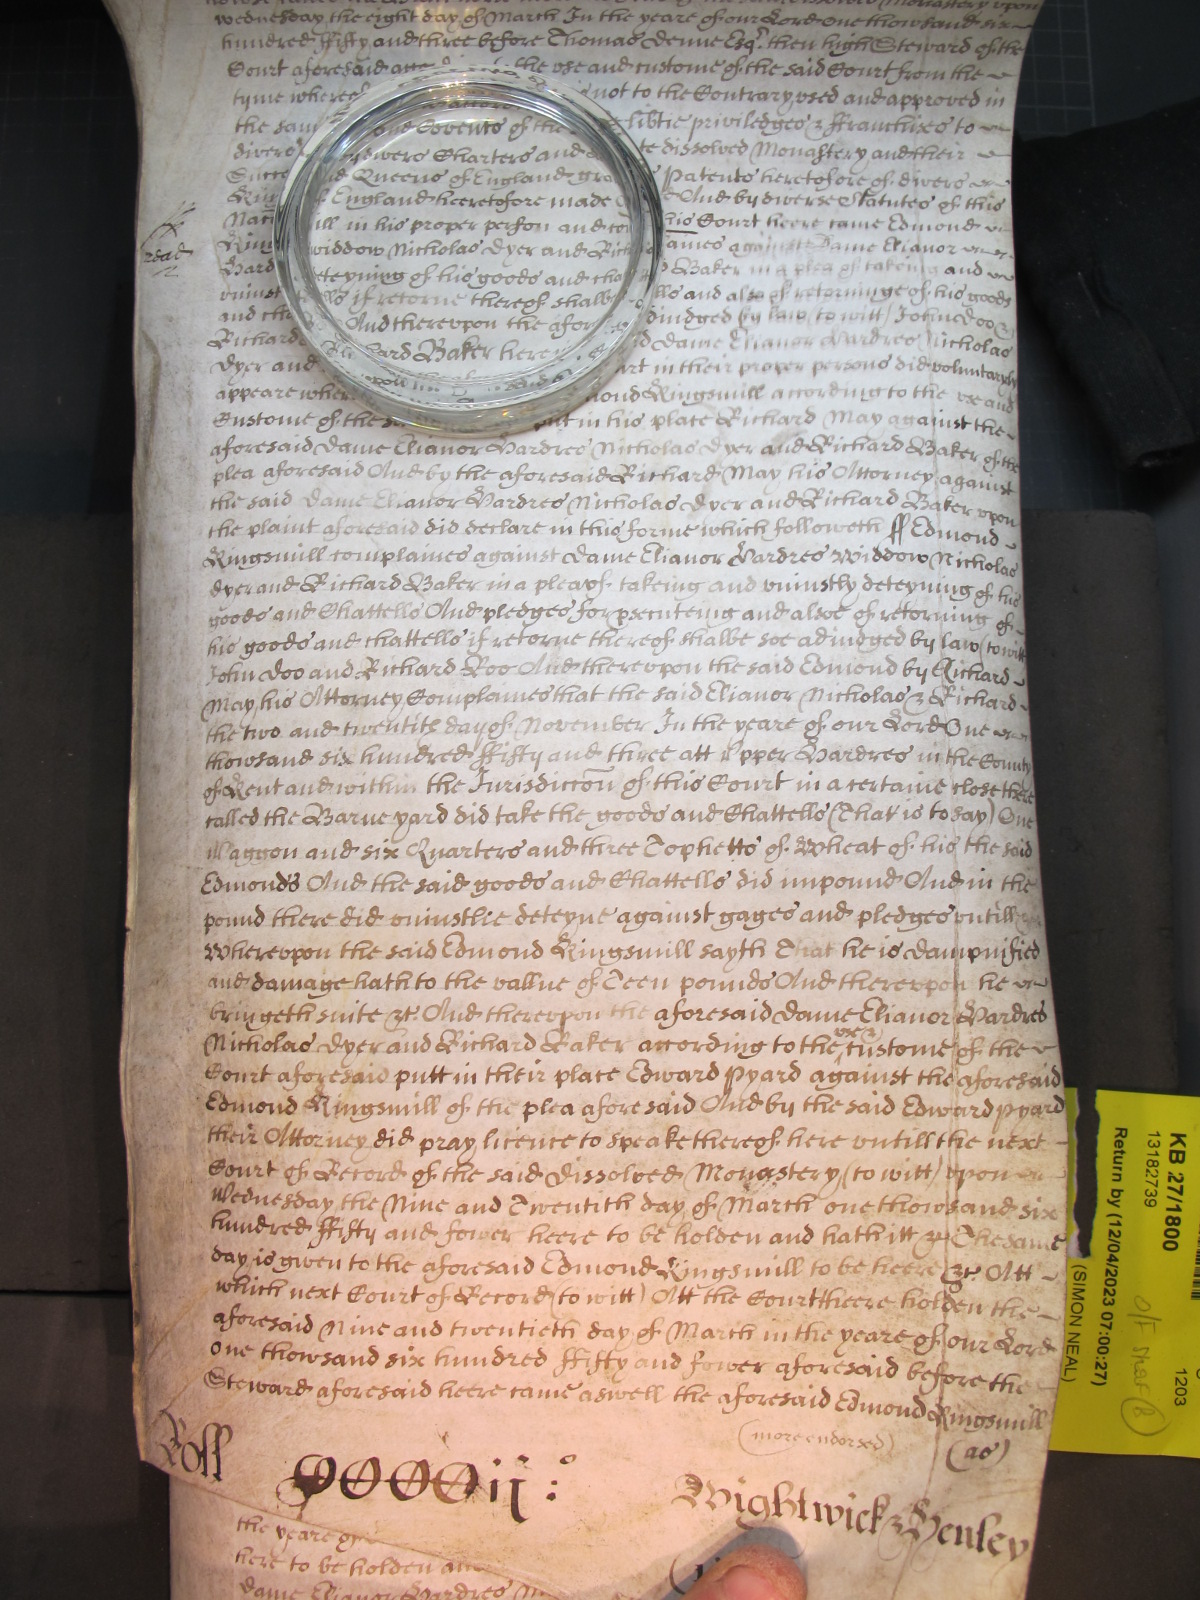 wednesday the eight day of March In the yeare of our Lord one thowsand six
hundred ffifty and three before Thomas Denne Esqr. then high Steward of the
Court aforesaid the vse and custome of the said Court from the
tyme whereof not to the Contrary vsed and approved in
the sam Covents of the libtie priviledges & ffranchises to
divers Charters and te dissolved Monastery and their
Succe Queens of England gra Patents heretofore of divers
King England heeretofore made And by diverse Statutes of this
Nac mill in his proper person and com his Court heere came Edmond
King widdow Nicholas Dyer and Rich ames against Dame Elianor
Hard eteyning of his goods and chat Baker in a plea of takeing and
vniust lls if retorne thereof shalbe lls and also of retorninge of his goods
and cha And therevpon the afor diudged by law (to witt) John Doo &
Richard Richard Baker heere id Dame Elianor Hardres Nicholas
Dyer and urt in their proper persons did voluntaryly
appeare wher mond Kingsmill according to the vse and
Custome of the putt in his place Richard May against the
aforesaid Dame Elianor Hardres Nicholas Dyer and Richard Baker of the
plea aforesaid And by the aforesaid Richard May his Attorney against
the said Dame Elianor Hardres Nicholas Dyer and Richard Baker vpon
the plaint aforesaid did declare in this forme which followeth ss Edmond
Kingsmill complaines against Dame Elianor Hardres Widdow Nicholas
Dyer and Richard Baker in a plea of takeing and vniustly deteyning of his
goods and Chattells And pledges for psecuteing and alsoe of retorning of
his goods and chattells if retorne thereof shalbe soe adiudged by law (to witt)
John Doo and Richard Roo And therevpon the said Edmond by Richard
May his Attorney Complaines that the said Elianor Nicholas & Richard
the two and twentith day of November In the yeare of our Lord One
thowsand six hundred ffifty and three att Vpper Hardres in the County
of Kent and within the Jurisdiccon of this Court in a certaine close there
called the Barne yard did take the goods and Chattells (That is to say) One
Waggon and six Quarters and three Tophetts of Wheat of his the said
Edmonds And the said goods and Chattells did impound And in the
pound there did vniustlie deteyne against gages and pledges vntill
Wherevpon the said Edmond Kingsmill sayth That he is dampnified
and damage hath to the vallue of Teen pounds And therevpon he
bringeth suite &c And therevpon the aforesaid Dame Elianor Hardres
Nicholas Dyer and Richard Baker according to the vse & custome of the
Court aforesaid putt in their place Edward Pyard against the aforesaid
Edmond Kingsmill of the plea aforesaid And by the said Edward Pyard
their Attorney did pray licence to speake thereof here vntill the next
Court of Record of the said dissolved Monastery (to witt) vpon
Wednesday the Nine and Twentith day of March one thowsand six
hundred ffifty and fower heere to be holden and hath itt &c The same
day is given to the aforesaid Edmond Kingsmill to be heere &c Att
which next Court of Record (to witt) Att the Court heere holden the
aforesaid Nine and twentieth day of March in the yeare of our Lord
one thowsand six hundred ffifty and fower aforesaid before the
Steward aforesaid heere came aswell the aforesaid Edmond Kingsmill
(more endorsed) (as)
Roll
Wightwick & Henley
the yeare of
here to be holden and
Dame Elianor Hardres
KB 27/1800
13182739
Return by (12/04/2023 07:00:27)
(SIMON NEAL)
1203